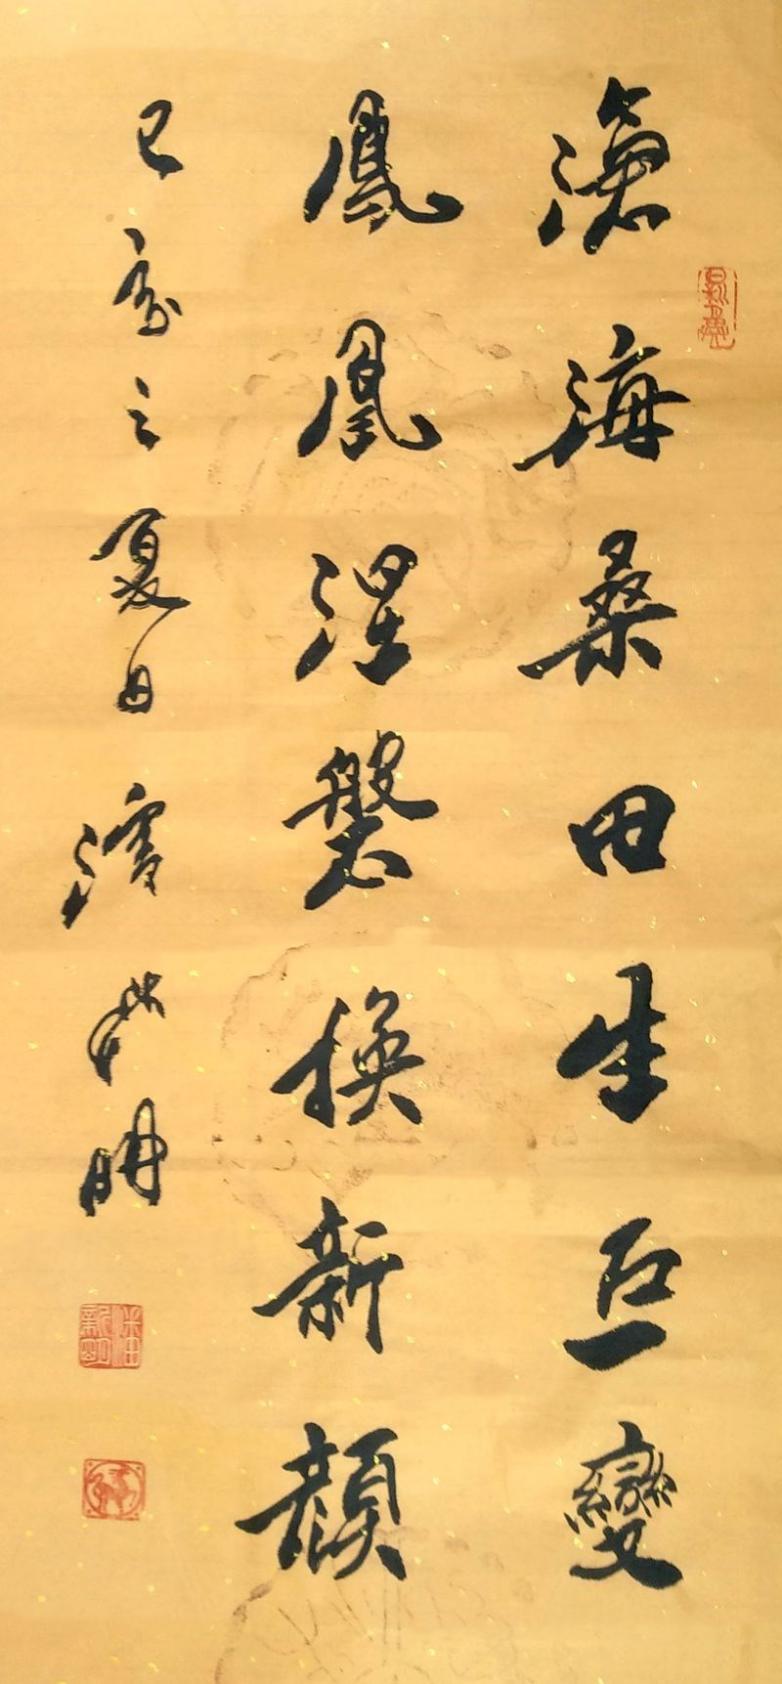 滄海桑田生巨變
鳳凰涅槃換新顏
己亥之夏月濤洪明